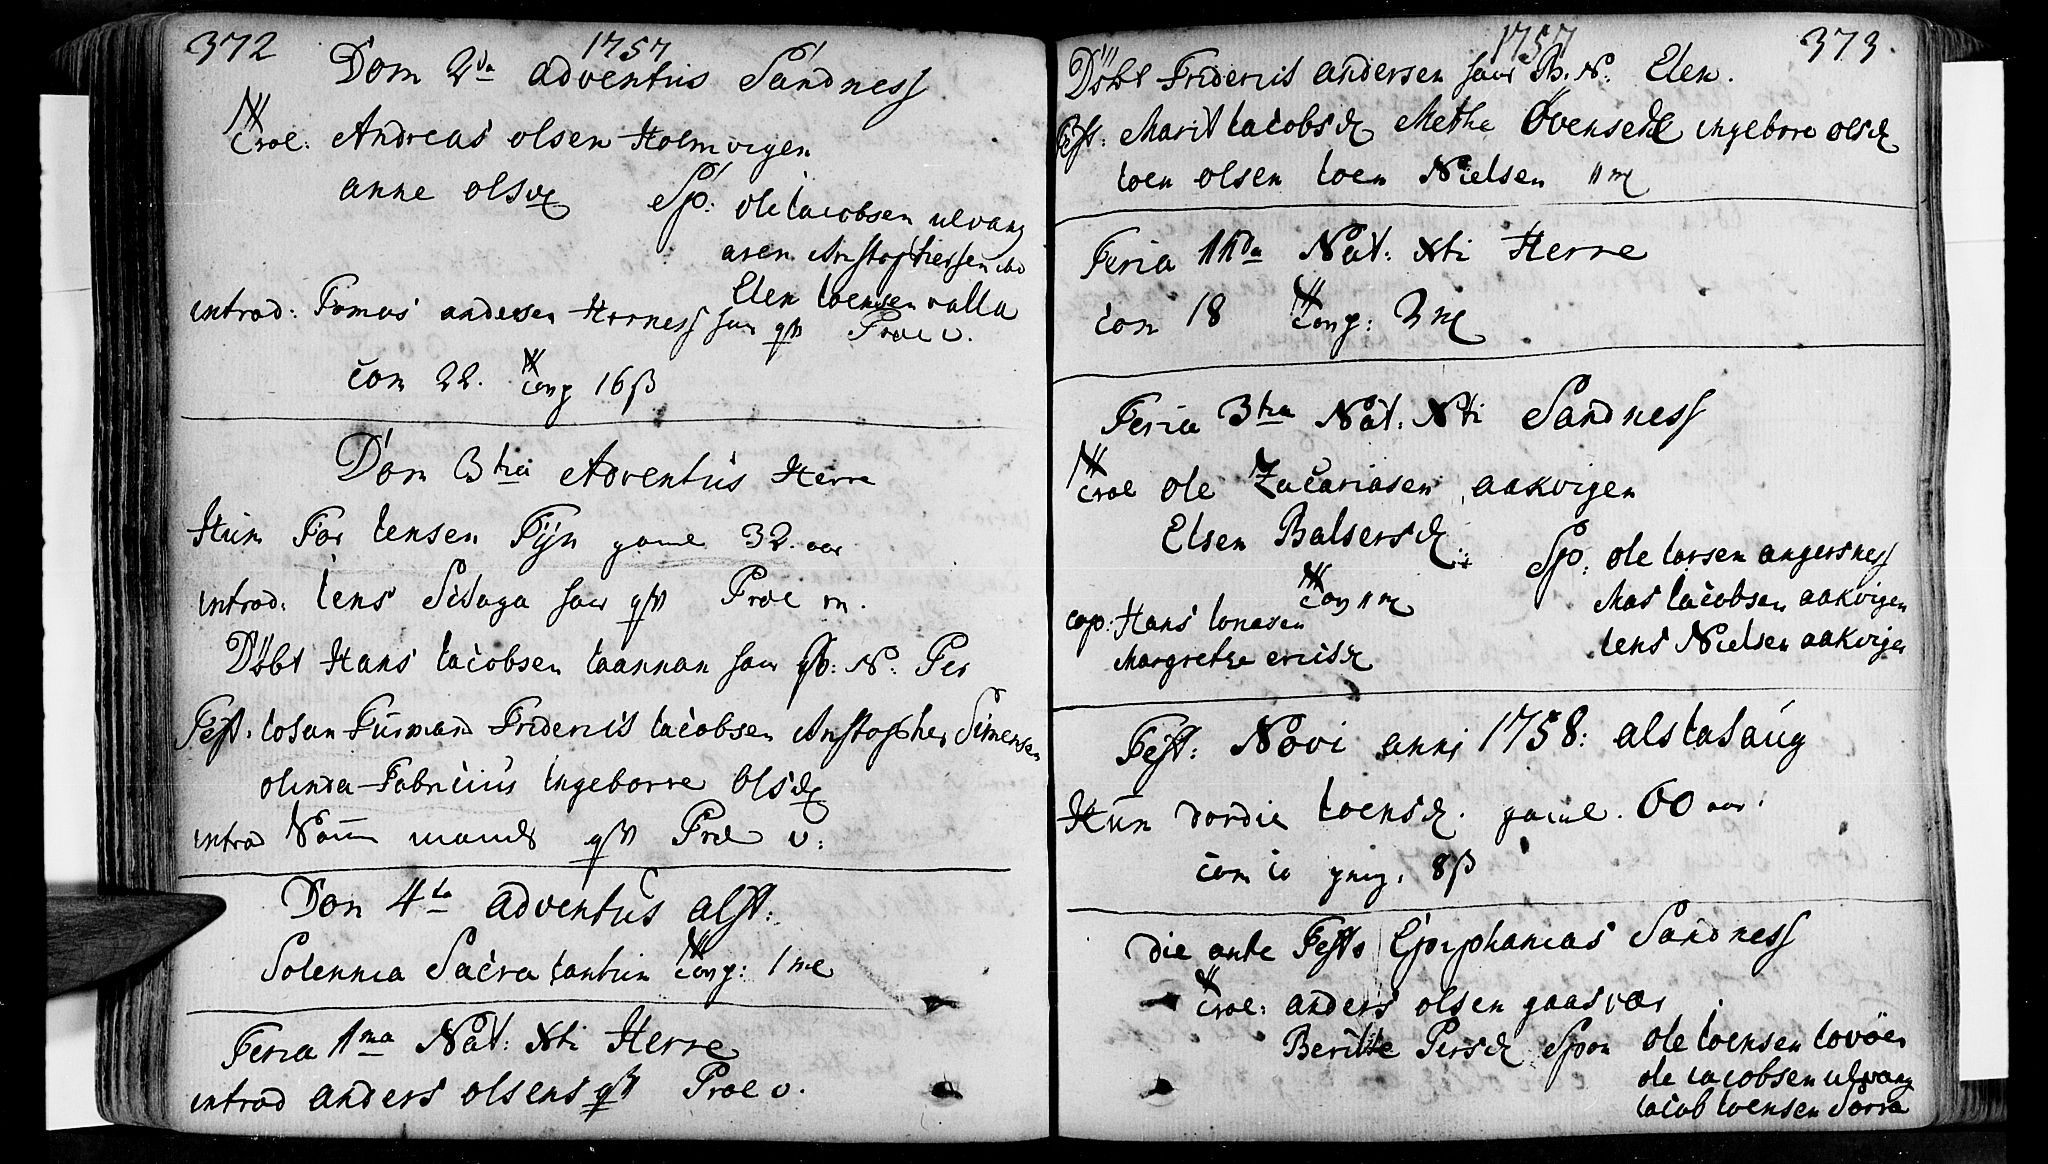 372
1757
Dom 2da Adventus Sandness
Trol: Andreas olsen Holmvigen
anne olsd
Sp: ole Jacobsen ulvang
aren Christophersen ibd
Elen Joensen valla
introd: Tomas andersen Horness
Prol v.
Com 22. Cong 16 β
Dom 3tia Adventus Herre
Hum For Jensen Fÿn gaml 32. aar
introd: Jens Sidaga Prol m.
Döbt Hans Jacobsen N: Per
Test. Josan Furmand Friderich Jacobsen Christopher Simensen
olinda Fabricius Ingeborre Olsd
introd Prol v:
Dom 4ta adventus alst:
Solennia Sacra tantum Cong: 1 mk
Feria 1ma Nat: Xti Herre
introd anders olsens Prol v.
1757
373.
Döbt Friderich andersen B. N: Elen.
Test: Marit Jacobsd Methe Ovensd ingeborre olsd
Joen olsen Joen Nielsen
Feria IIda Nat: Xti Herre
Com 18 Cong: 3 mk
Feria 3tia Nat: Xti Sandness
Trol ole Zacariasen aakvigen
Elsen Balsersd
Sp: ole larsen angersness
Mas Jacobsen aakvigen
Jens Nielsen aakvigen
Cong
cop: Hans Jonasen
Margrethe ericsd
Fest: Novi anni 1758: alstahaug
Hun dordie Joensd. gaml. 60 aar.
Com 8 β
Die ante Festo Epiphanias Sandness
Trol: anders olsen gaasvær
Beritte Persd Spon ole Joensen Lovöen
ole Jacobsen ulvang
Jacob Joensen Sörra